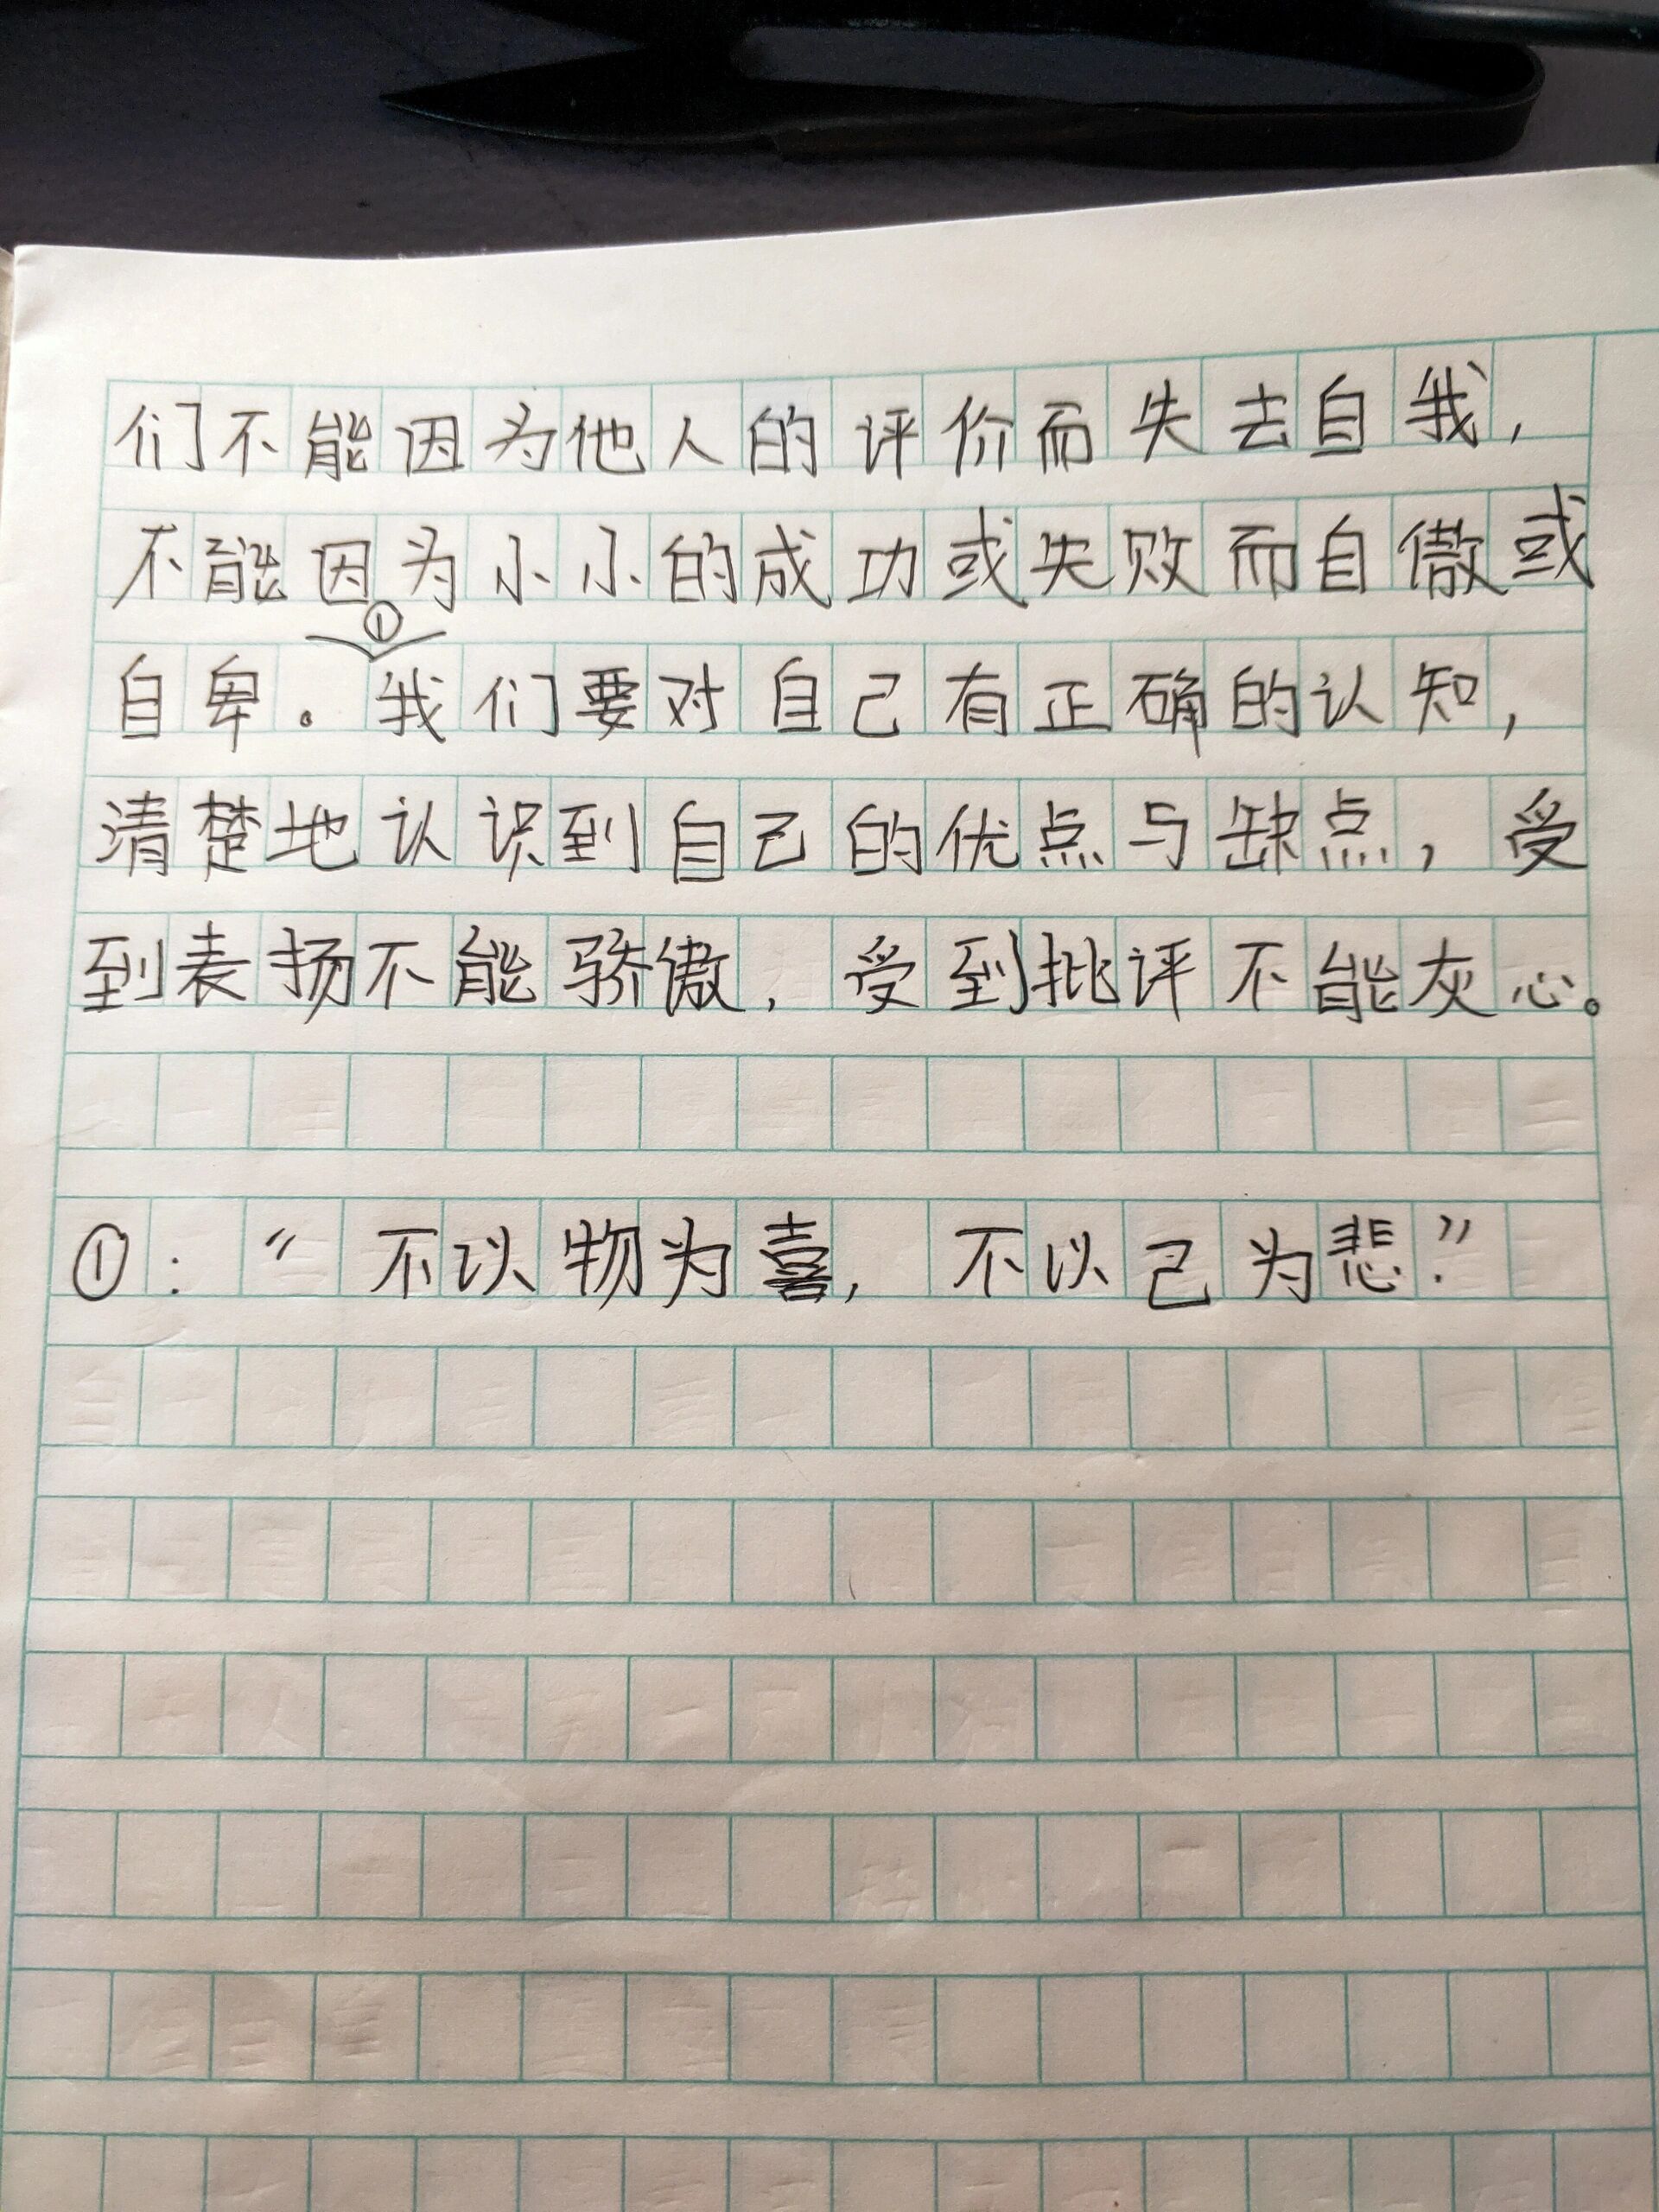 们不能因为他人的评价而失去自我，
不能因为小小的成功或失败而自傲或
①
自卑。我们要对自己有正确的认知，
清楚地认识到自己的优点与缺点，受
到表扬不能骄傲，受到批评不能灰心。
①：“不以物为喜，不以己为悲.”